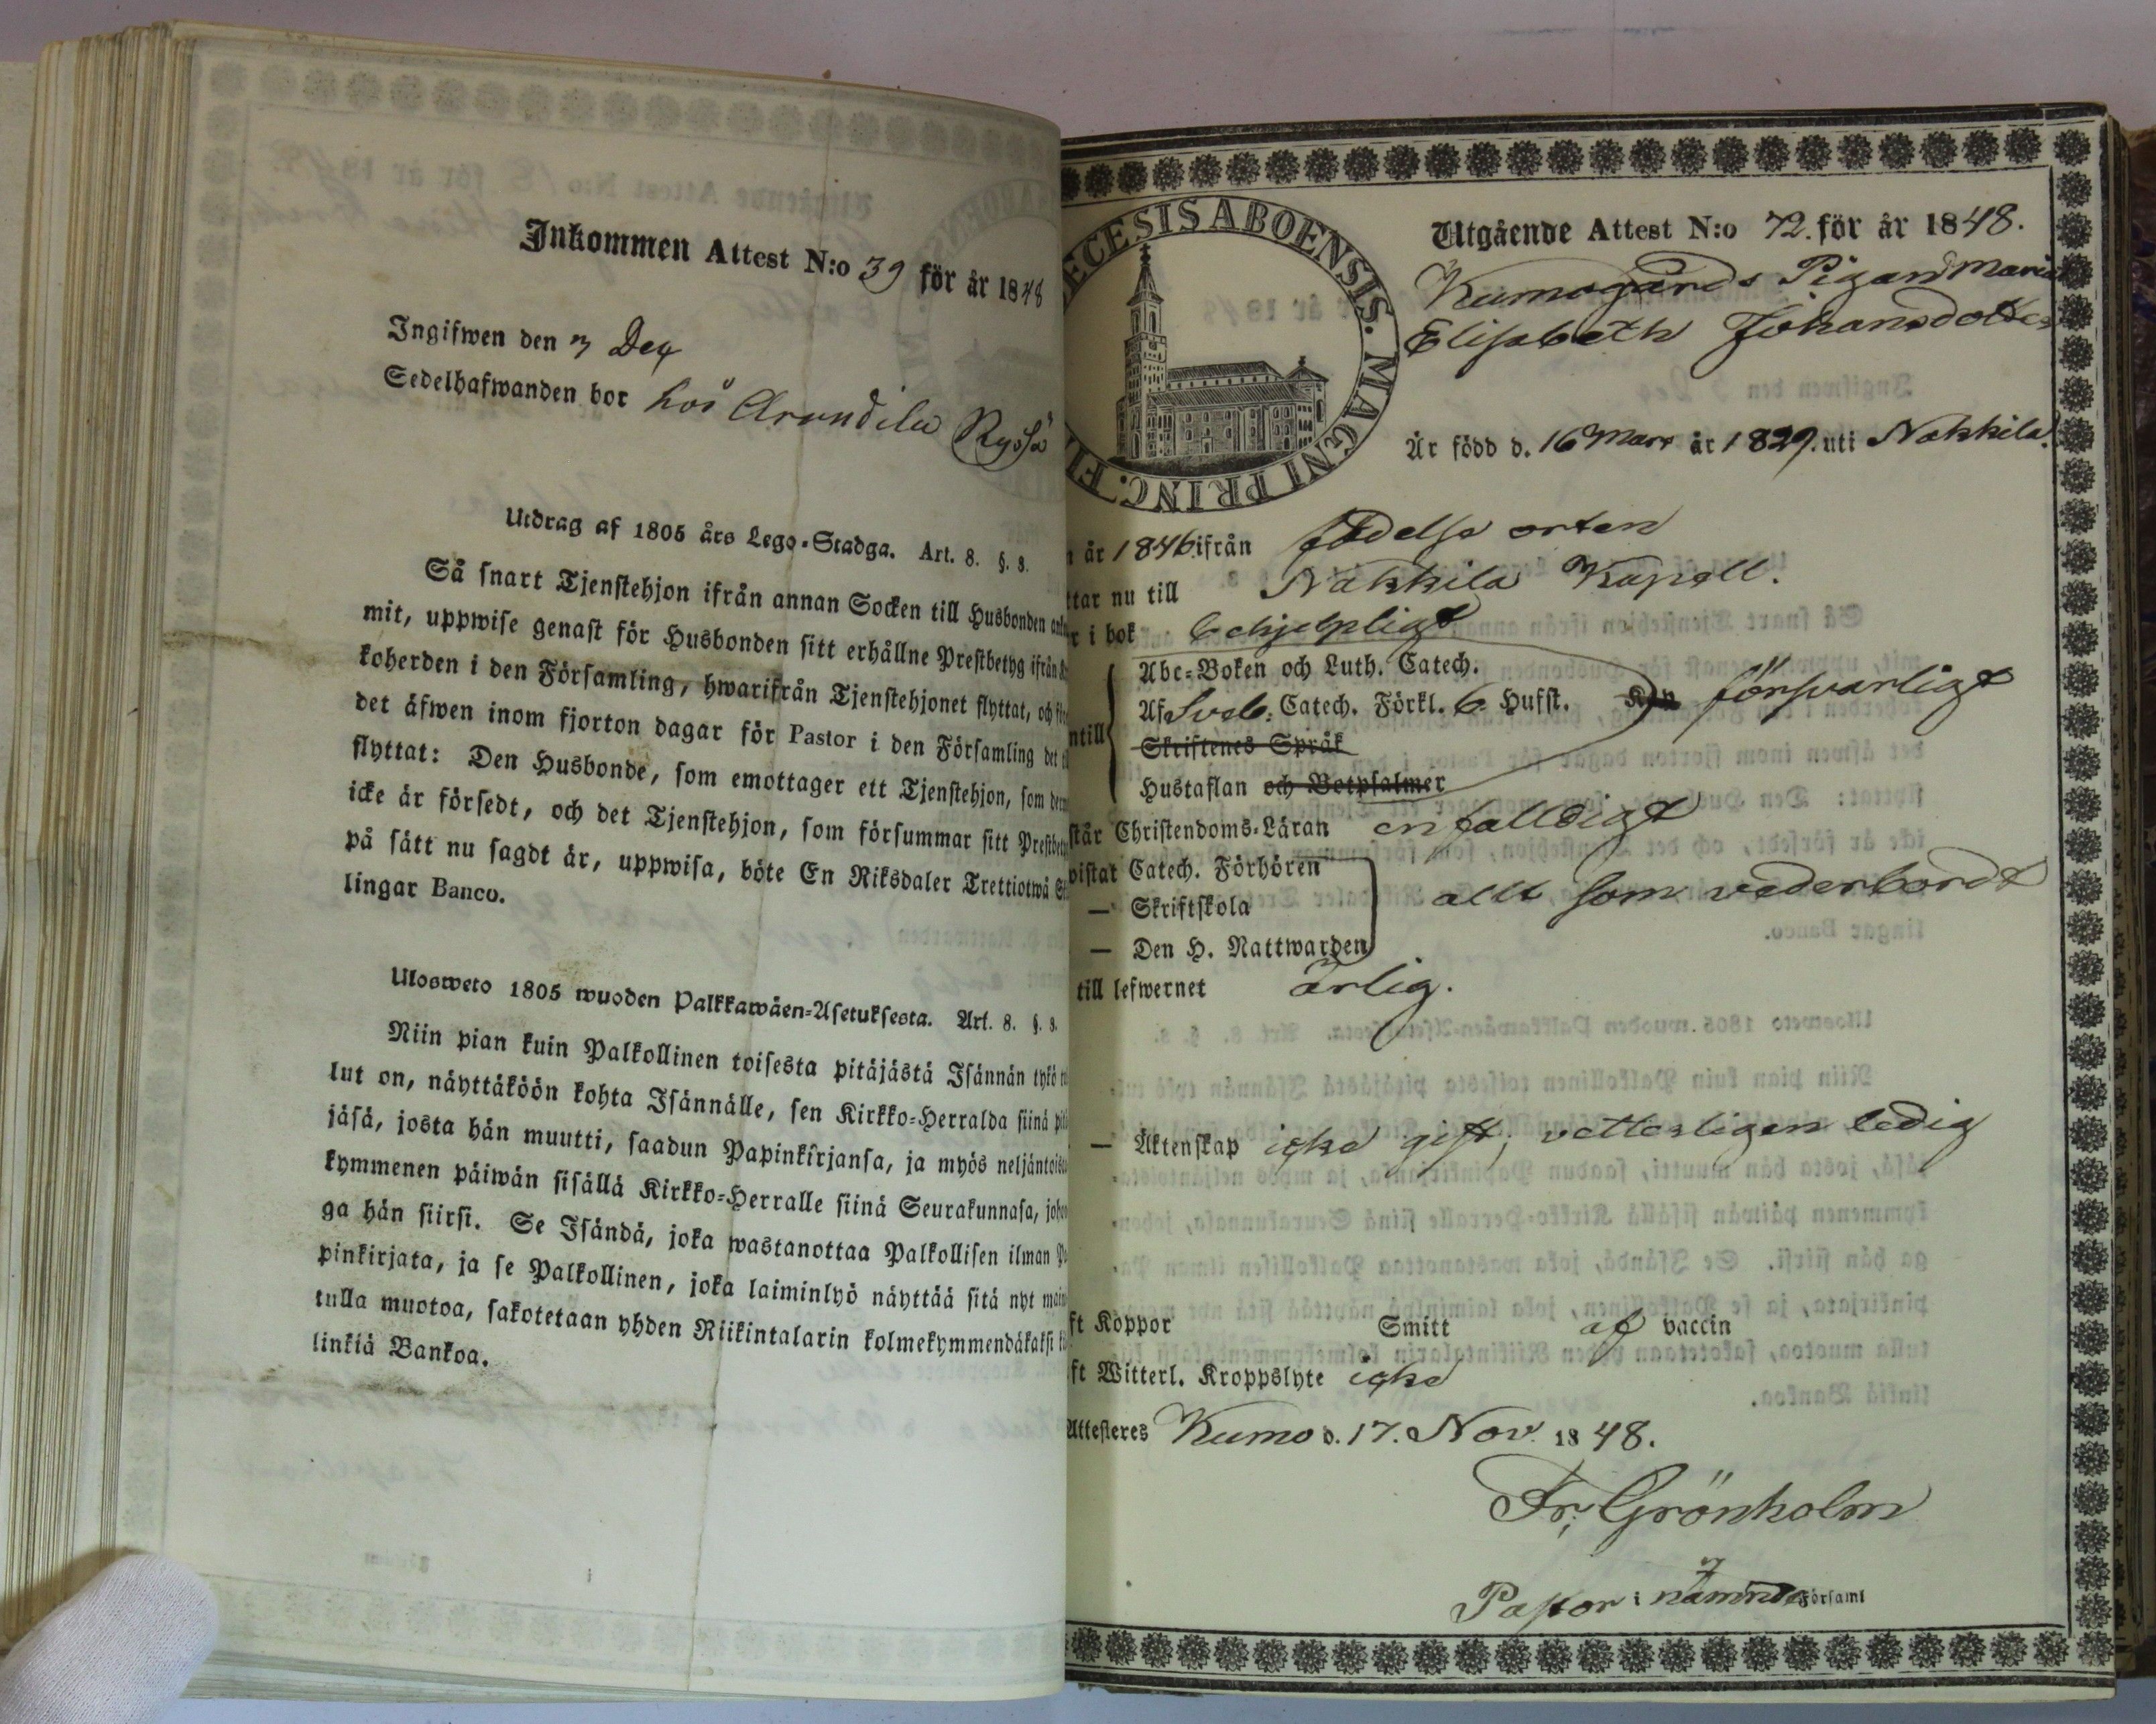 Inkommen Attest N:o 39 för år 1848
Ingifwen den 7 Dec
Sedelhafwanden bor hos Arundila Ryssä
Utdrag af 1805 års Lego-Stadga. Art. 8. §. 8.
Så snart Tjenstehjon ifrån annan Socken till Husbonden
mit, uppwise genast för Husbonden sitt erhållne Prestbetyg ifrån
koherden i den Församling, hwarifrån Tjenstehjonet flyttat, och
det äfwen inom fjorton dagar för Pastor i den Församling det
flyttat: Den Husbonde, som emottager ett Tjenstehjon, som
icke är försedt, och det Tjenstehjon, som försummar sitt
på sätt nu sagdt är, uppwisa, böte En Riksdaler Trettiotwå
lingar Banco.
Ulosweto 1805 wuoden Palkkawäen-Asetuksesta. Art. 8. §. 8.
Niin pian kuin Palkollinen toisesta pitäjästä Isännän tykö
lut on, näyttäköön kohta Isännälle, sen Kirkko-Herralda siinä
jäsä, josta hän muutti, saadun Papinkirjansa, ja myös
kymmenen päiwän sisällä Kirkko-Herralle siinä Seurakunnasa,
ga hän siirsi. Se Isändä, joka wastanottaa Palkollisen ilman
pinkirjata, ja se Palkollinen, joka laiminlyö näyttää sitä nyt
tulla muotoa, sakotetaan yhden Riikintalarin kolmekymmendäkaksi
linkiä Bankoa.
ECESIS ABOENSIS. MAGNI PRINC. FI
Utgående Attest N:o 72. för år 1848.
Kumogårds Pigan Maria
Elisabeth Johansdotter
Är född d. 16 Mars år 1829. uti Nakkila.
år 1846 ifrån födelse orten
ttar nu till Nakkila Kapell.
r i bok behjelpligt
Abc-Boken och Luth. Catech.
Af Sveb. Catech. Förkl. 6 Hufst. försvarligt
ntill Skriftenes Språk
Hustaflan och Botpsalmer
står Christendoms-Läran enfalldigt
vistat Catech. Förhören
— Skriftskola allt som vederbordt
— Den H. Nattwarden
till lefwernet ärlig.
— Äktenskap icke gift; vetterligen ledig
ft Koppor Smitt af vaccin
ft Witterl. Kroppslyte icke
Attesteres Kumo d. 17. Nov. 1848.
Fr. Grönholm
Pastor i nämnde Församl